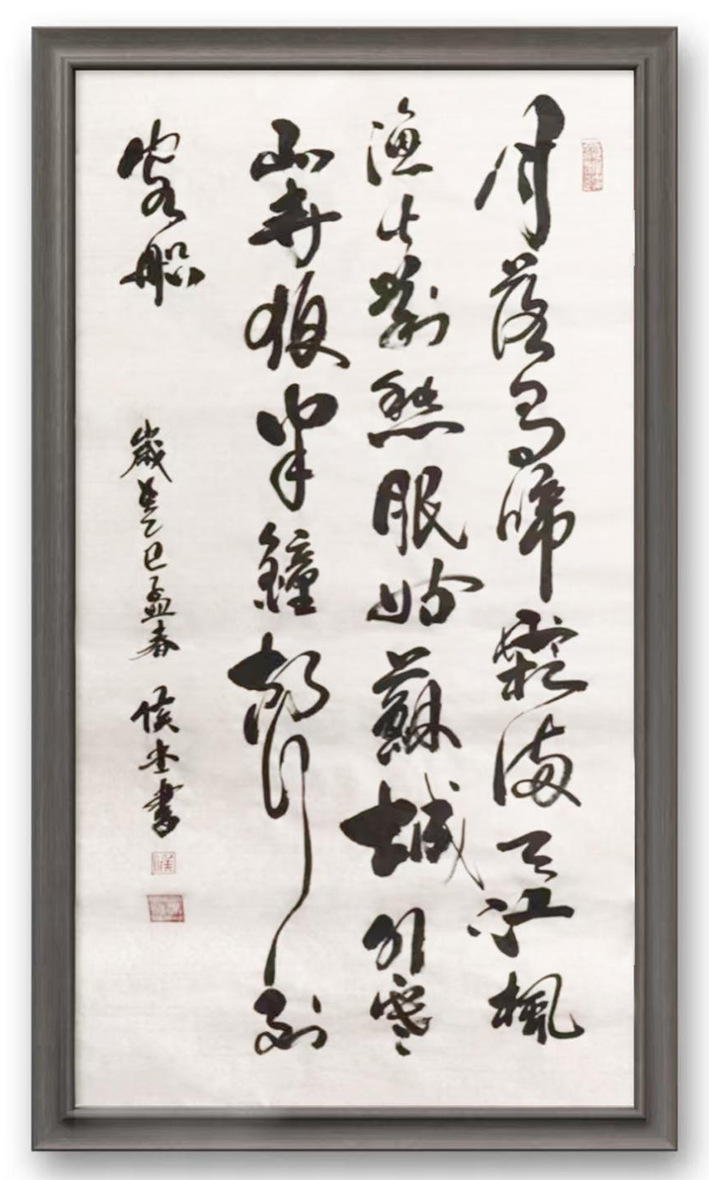 月落烏啼霜滿天江楓
漁火對愁眠姑蘇城外寒
山寺夜半鐘聲到
客船
歲在乙巳孟春 侯書